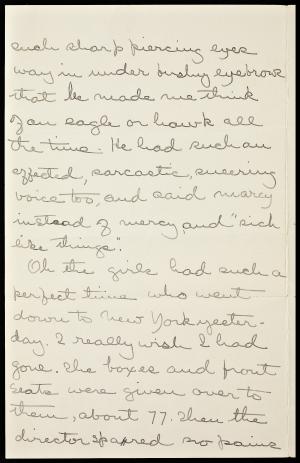 such sharp piercing eyes
way in under bushy eyebrows
that he made me think
of an eagle or hawk all
the time. He had such an
affected, sarcastic, sneering
voice too, and said marcy
instead of mercy and "sich
like things".
Oh the girls had such a
perfect time who went
down to New York yester-
day. I really wish I had
gone. The boxes and front
seats were given over to
them, about 77. Then the
director spared no pains